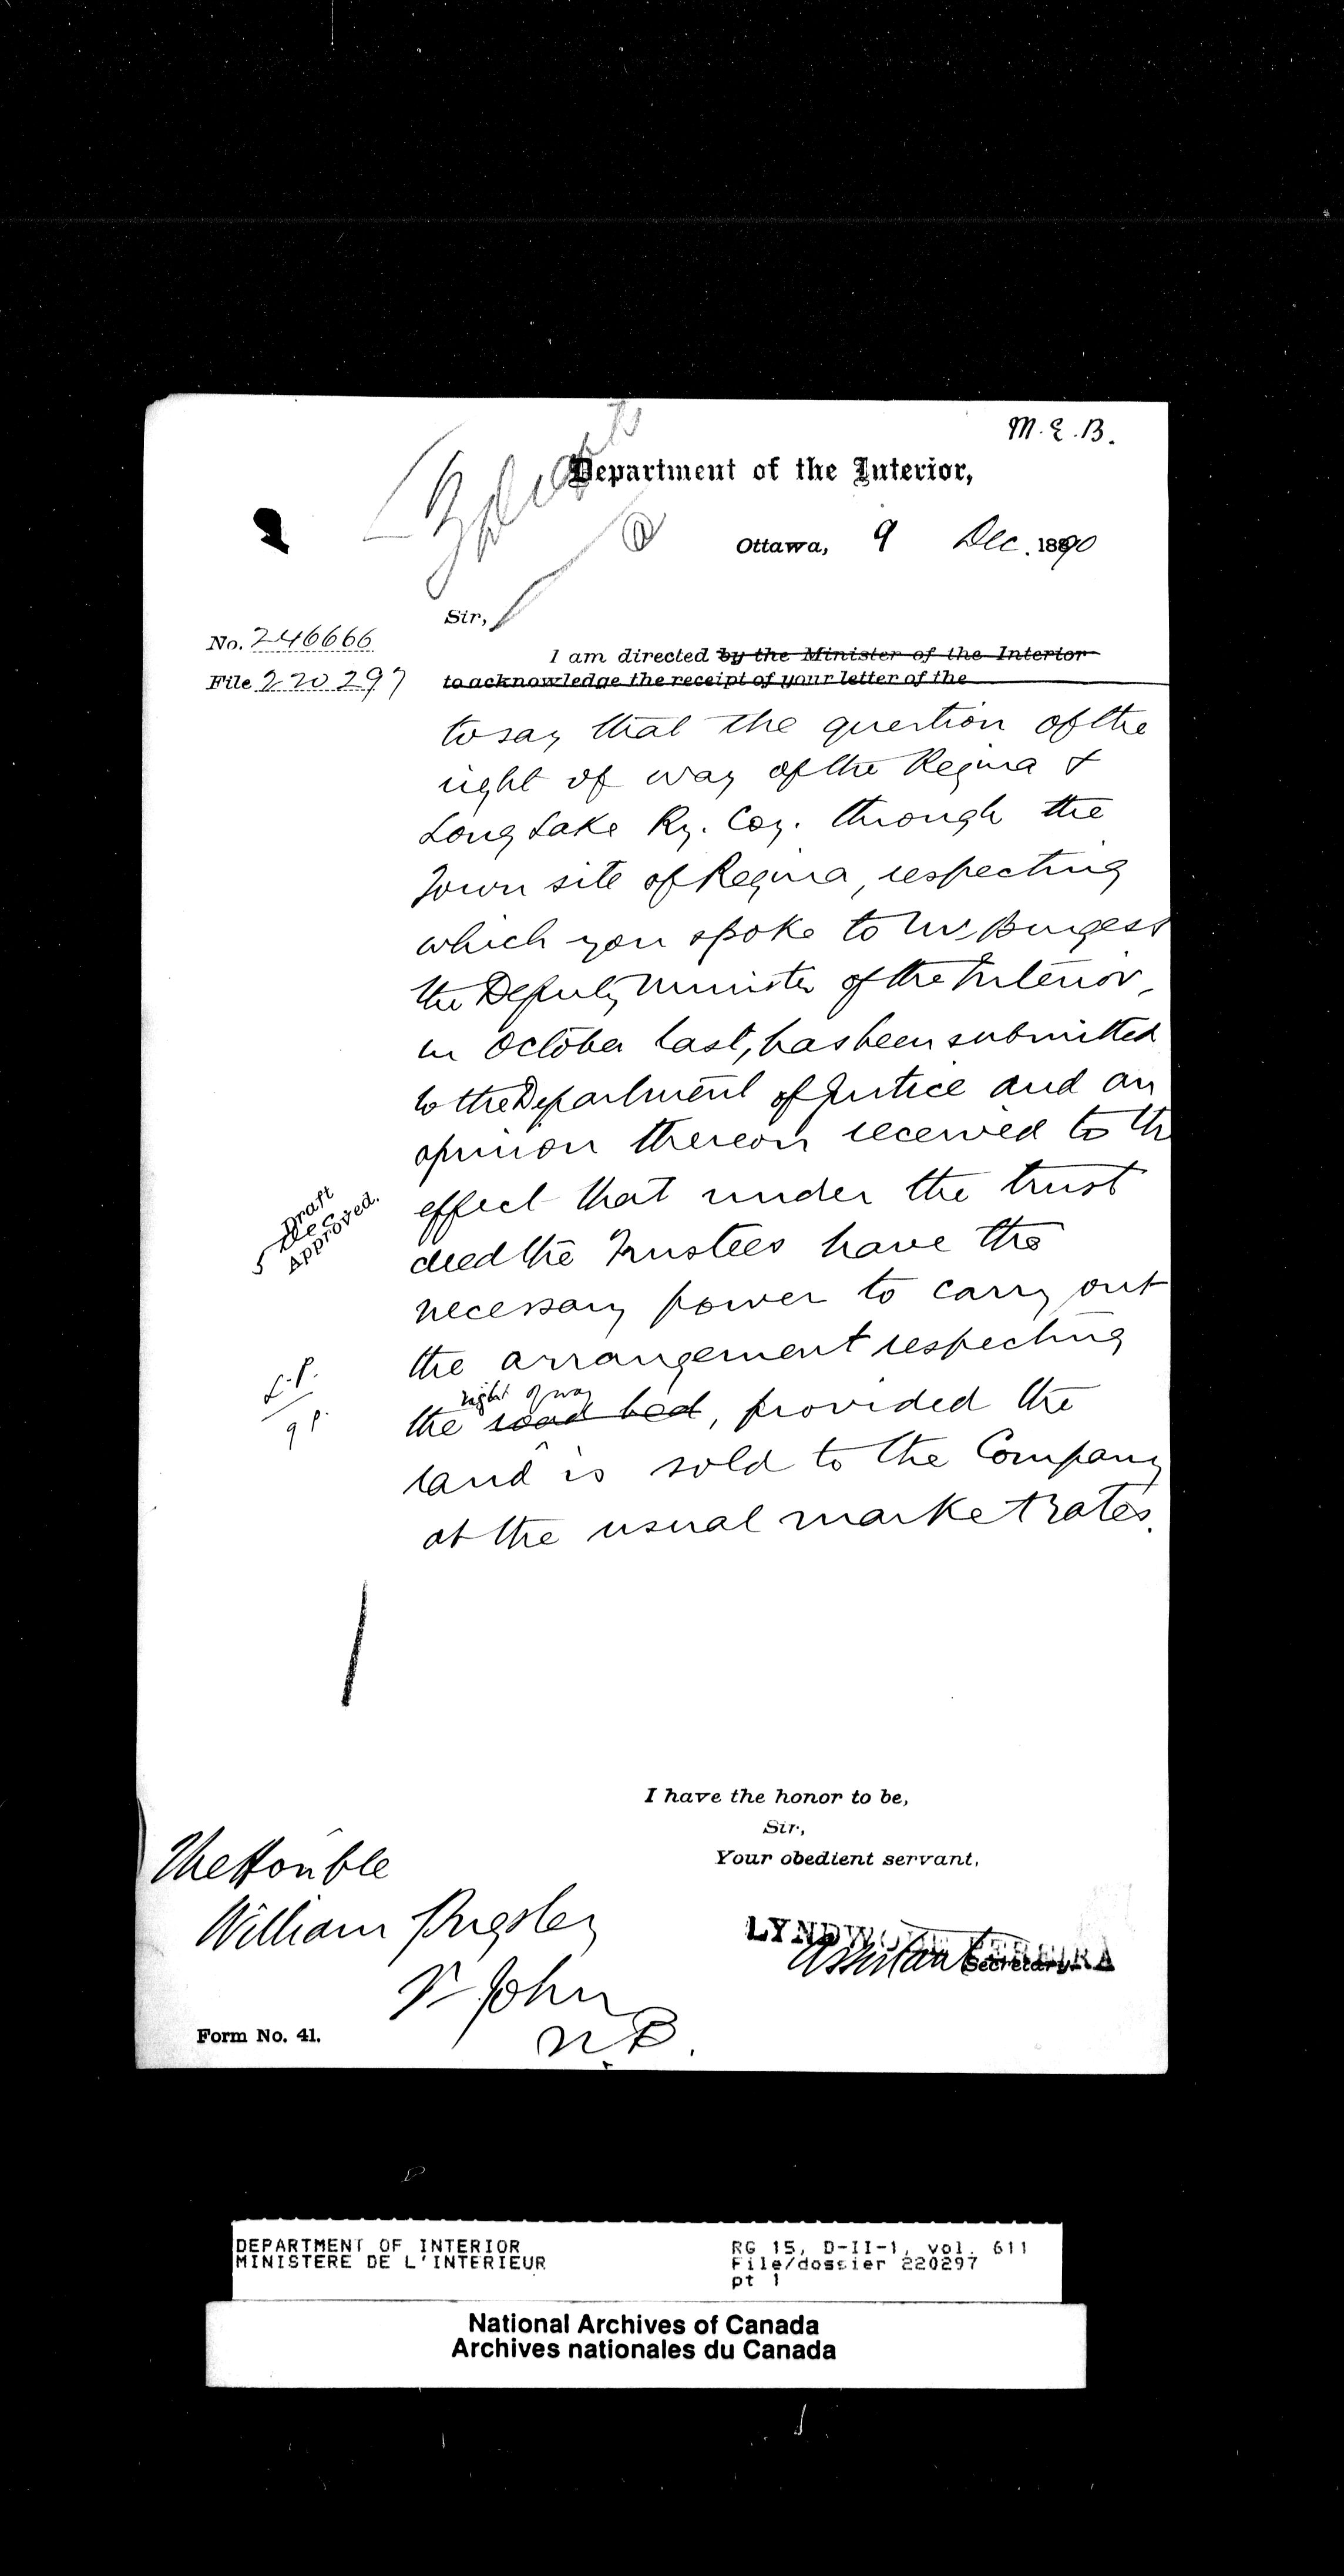 M.E.B.
Department of the Interior,
Ottawa, 9 Dec. 1890
Sir,
No. 246666
File 220297
I am directed by the Minister of the Interior
to acknowledge the receipt of your letter of the
to say that the question of the
right of way of the Regina &
Long Lake Ry. Coy. through the
Town site of Regina, respecting
which you spoke to Mr. Burgess
the Deputy Minister of the Interior,
in October last, has been submitted
to the Department of Justice and an
opinion thereon received to th
effect that under the trust
deed the Trustees have the
necessary power to carry out
the arrangement respecting
right of way
the road bed, provided the
land is sold to the Company
at the usual market rates.
Draft
5 Dec.
Approved.
L.P.
9 P.
I have the honor to be,
Sir,
Your obedient servant,
LYNDWODE PEREIRA
Assistant Secretary.
The Honble
William Pugsley
St John
N.B.
Form No. 41.
DEPARTMENT OF INTERIOR
MINISTERE DE L'INTERIEUR
RG 15, D-II-1, vol. 611
File/dossier 220297
pt 1
National Archives of Canada
Archives nationales du Canada